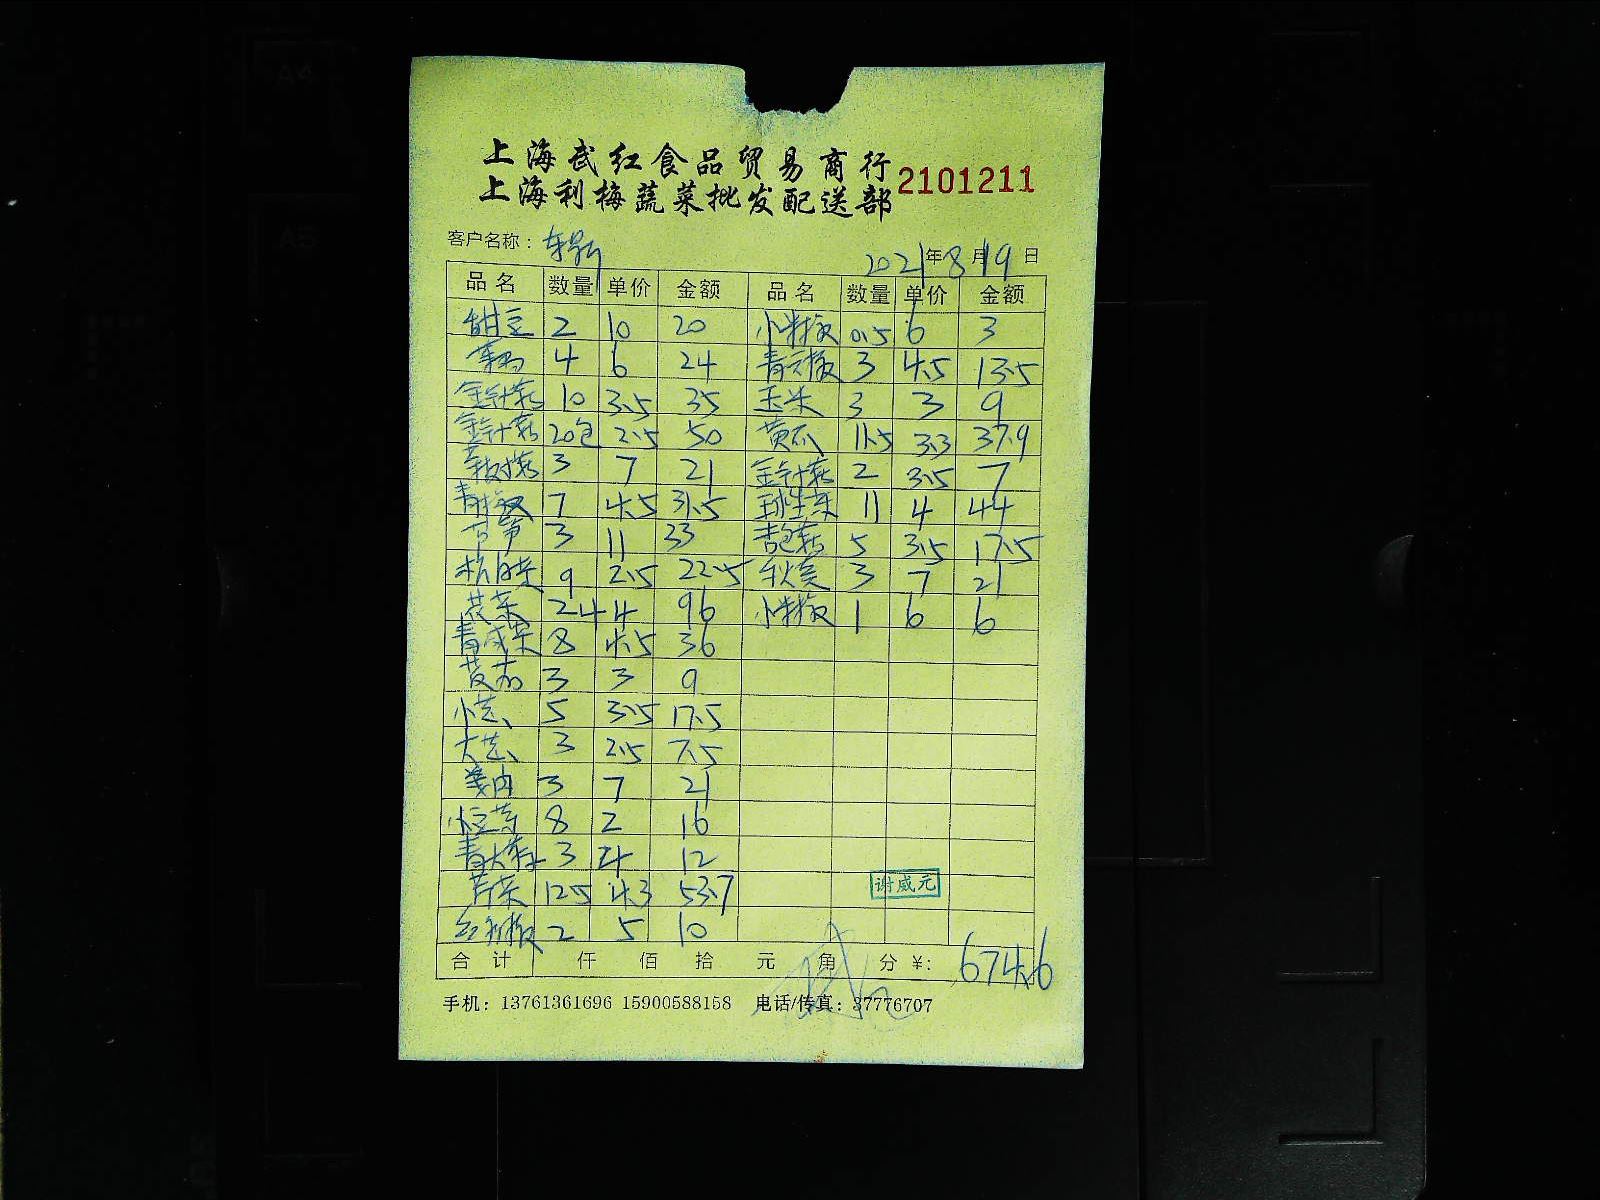 上海武红食品贸易商行
上海利梅蔬菜批发配送部 2101211
客户名称： 2021年8月19日
品名 数量 单价 金额 品名 数量 单价 金额
甜豆 2 10 20 小米椒 0.5 6 3
4 6 24 青元椒 3 4.5 13.5
金针菇 10 3.5 35 玉米 3 3 9
金针菇 20包 2.5 50 黄瓜 11.5 3.3 37.9
3 7 21 金针菇 2 3.5 7
青椒 7 4.5 31.5 11 4 44
3 11 33 杏鲍菇 5 3.5 17.5
杭白菜 9 2.5 22.5 秋葵 3 7 21
菠菜 24 4 96 小米椒 1 6 6
8 4.5 36
3 3 9
5 3.5 17.5
3 2.5 7.5
姜肉 3 7 21
小豆芽 8 2 16
3 4 12
芹菜 12.5 4.3 53.7
2 5 10
谢威元
合计 仟 佰 拾 元 角 分 ¥: 674.6
手机：13761361696 15900588158 电话/传真：37776707